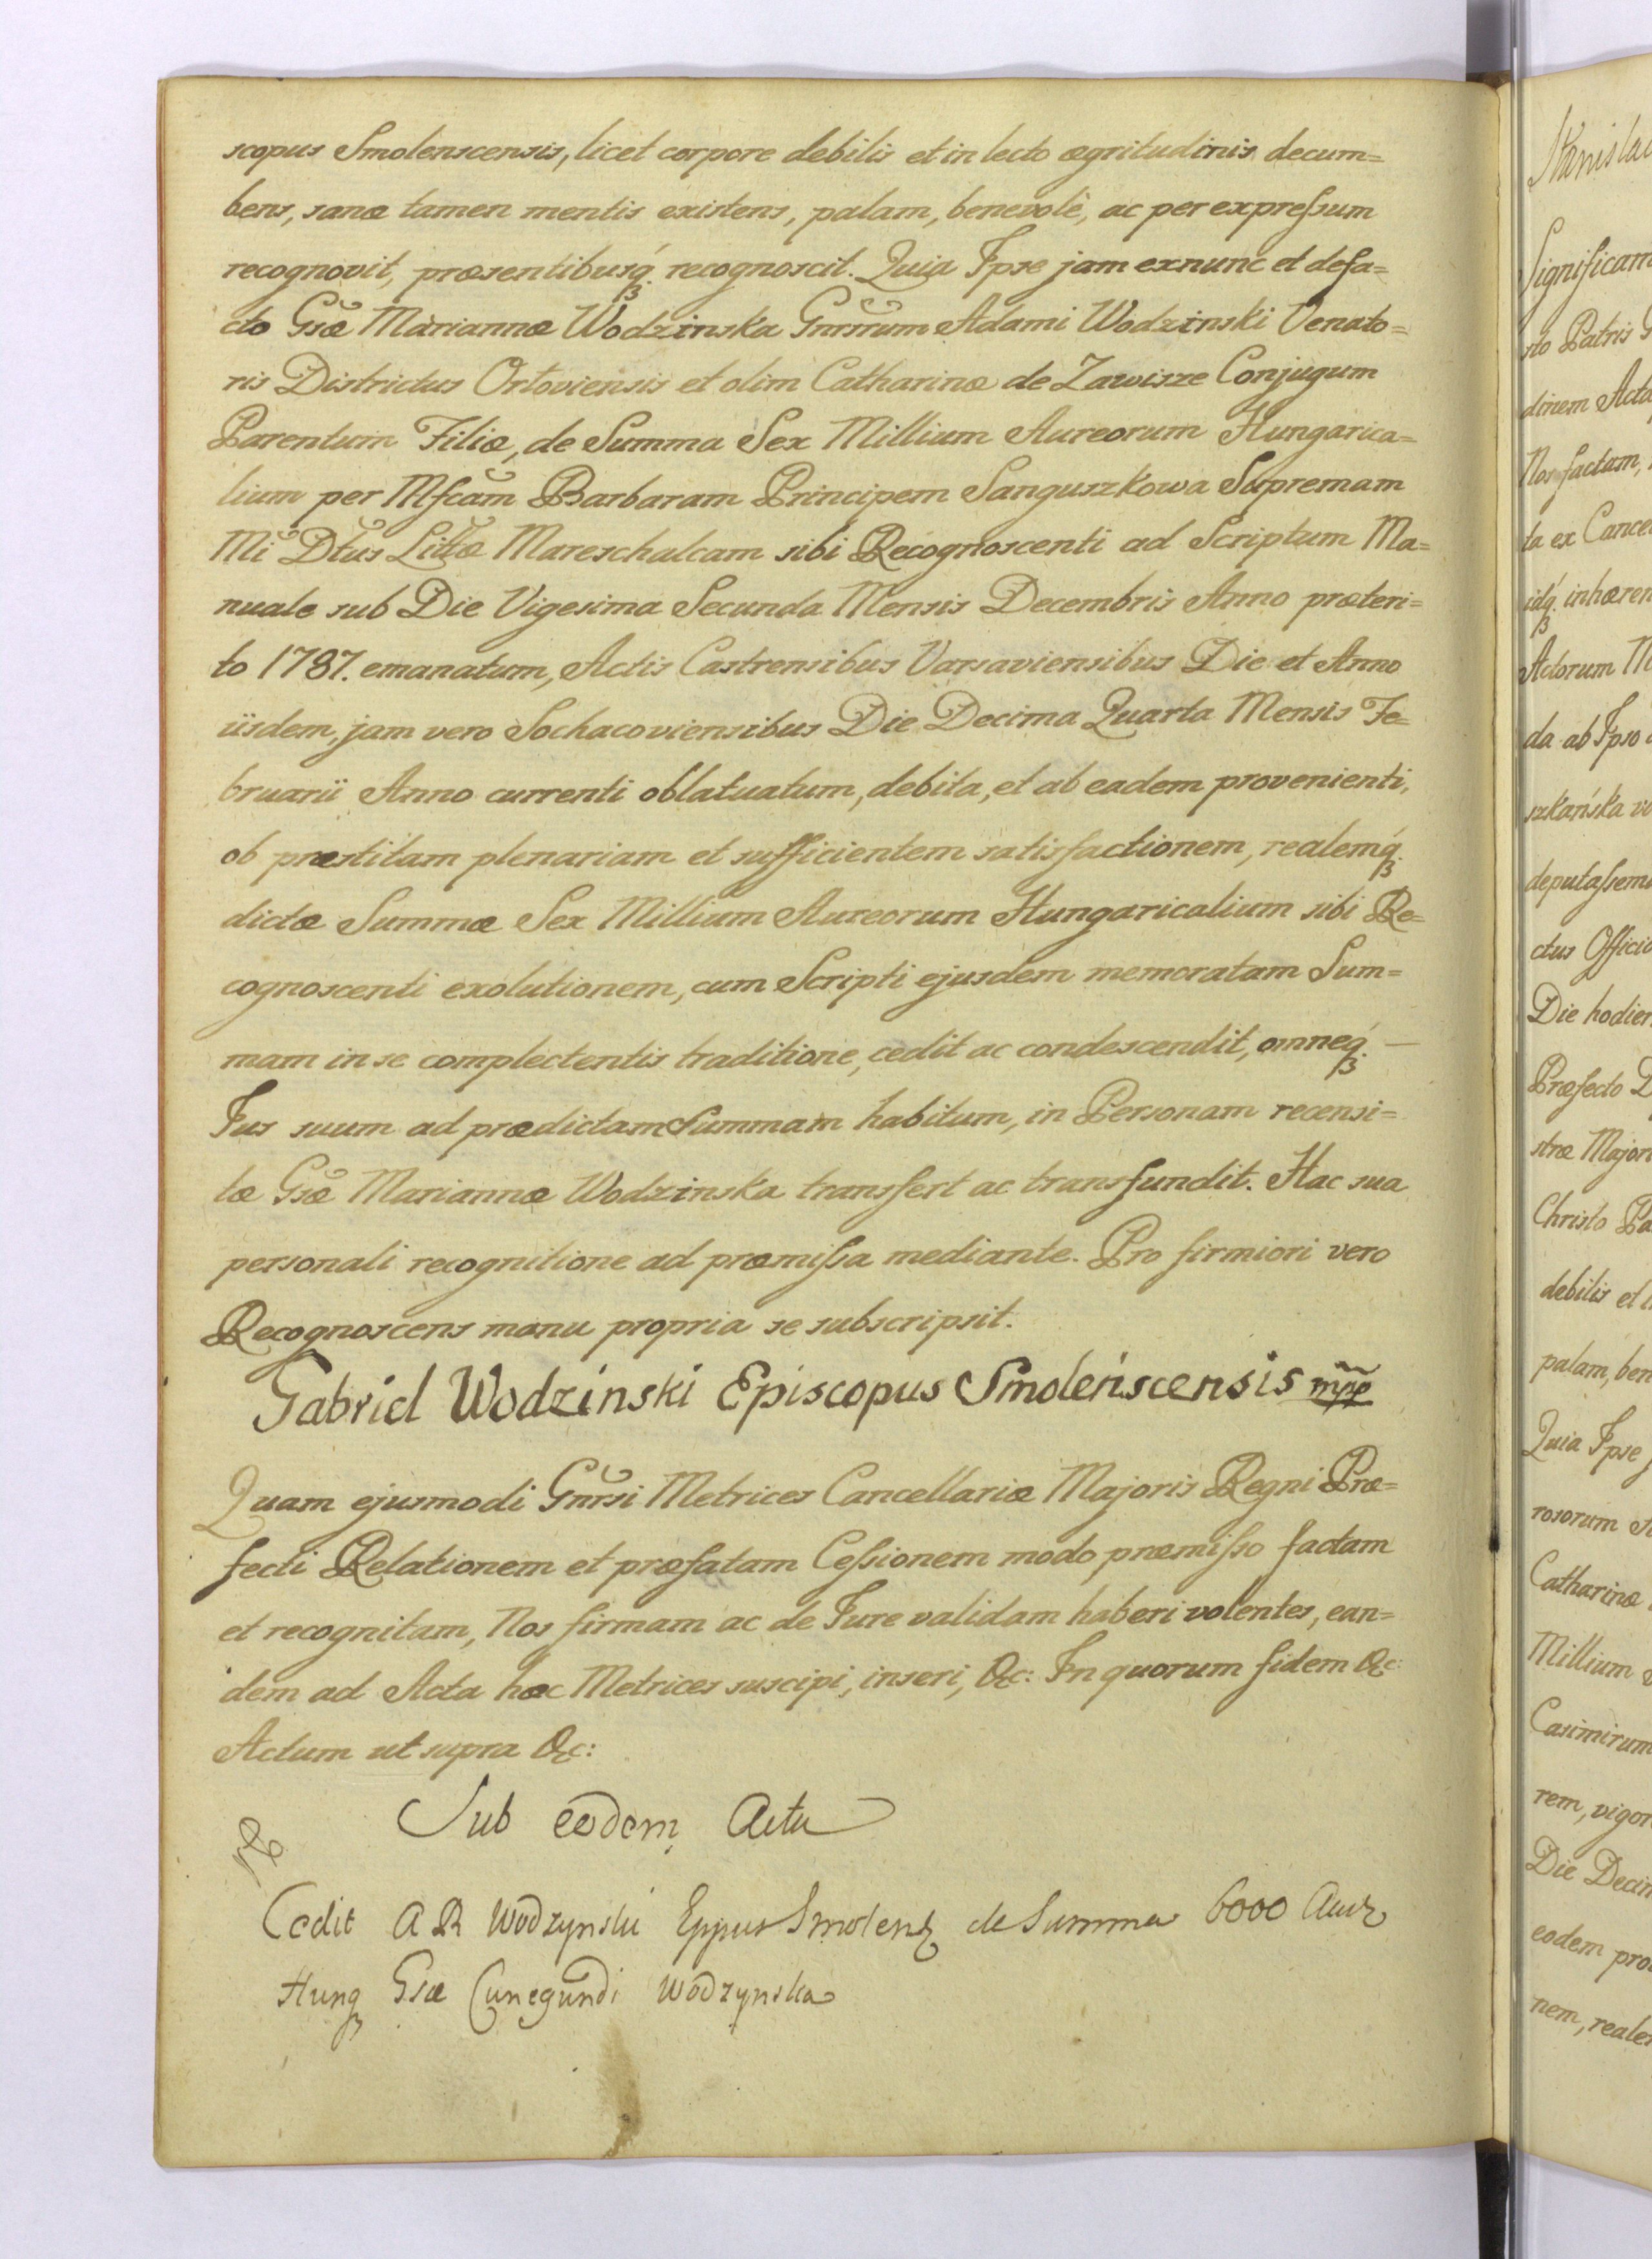 scopus Smolenscensis, licet corpore debilis et in lecto ægritudinis decum=
bens, sanæ tamen mentis existens, palam, benevolè, ac per expreſsum
recognovit, præsentibusq́ꝫ recognoscit. Quia Ipse jam exnunc et defa=
cto Gsæ Mariannæ Wodzinska Gnrsrum Adami Wodzinski Venato=
ris Districtus Ortoviensis et olim Catharinæ de Zawisze Conjugum
Parentum Filiæ, de Summa Sex Millium Aureorum Hungarica=
lium per Mfcam Barbaram Principem Sanguszkowa Supremam
Mi Dtus Litlæ Mareschalcam sibi Recognoscenti ad Scriptum Ma=
nuale sub Die Vigesima Secunda Mensis Decembris Anno præteri=
to 1787. emanatum, Actis Castrensibus Varsaviensibus Die et Anno
iisdem, jam vero Sochacoviensibus Die Decima Quarta Mensis Fe=
bruarii Anno currenti oblatuatum, debita, et ab eadem provenienti,
ob præstitam plenariam et sufficientem satisfactionem, realemq́ꝫ
dictæ Summæ Sex Millium Aureorum Hungaricalium sibi Re=
cognoscenti exolutionem, cum Scripti ejusdem memoratam Sum=
mam in se complectentis traditione, cedit ac condescendit, omneq́ꝫ —
Jus suum ad prædictam Summam habitum, in Personam recensi=
tæ Gsæ Mariannæ Wodzinska transfert ac transfundit. Hac sua
personali recognitione ad præmiſsa mediante. Pro firmiori vero
Recognoscens manu propria se subscripsit.
Gabriel Wodzinski Episcopus Smolenscensis mpp
Quam ejusmodi Gnrsi Metrices Cancellariæ Majoris Regni Præ=
fecti Relationem et præfatam Ceſsionem modo præmiſso factam
et recognitam, Nos firmam ac de Jure validam haberi volentes, ean=
dem ad Acta hæc Metrices suscipi, inseri, &c: In quorum fidem &c:
Actum ut supra &c:
Sub eodem Actu
Cedit A R Wodzynski Eppus Smolenꝫ de Summa 6000 Aurꝫ
Hungꝫ Gsæ Cunegundi Wodzynska